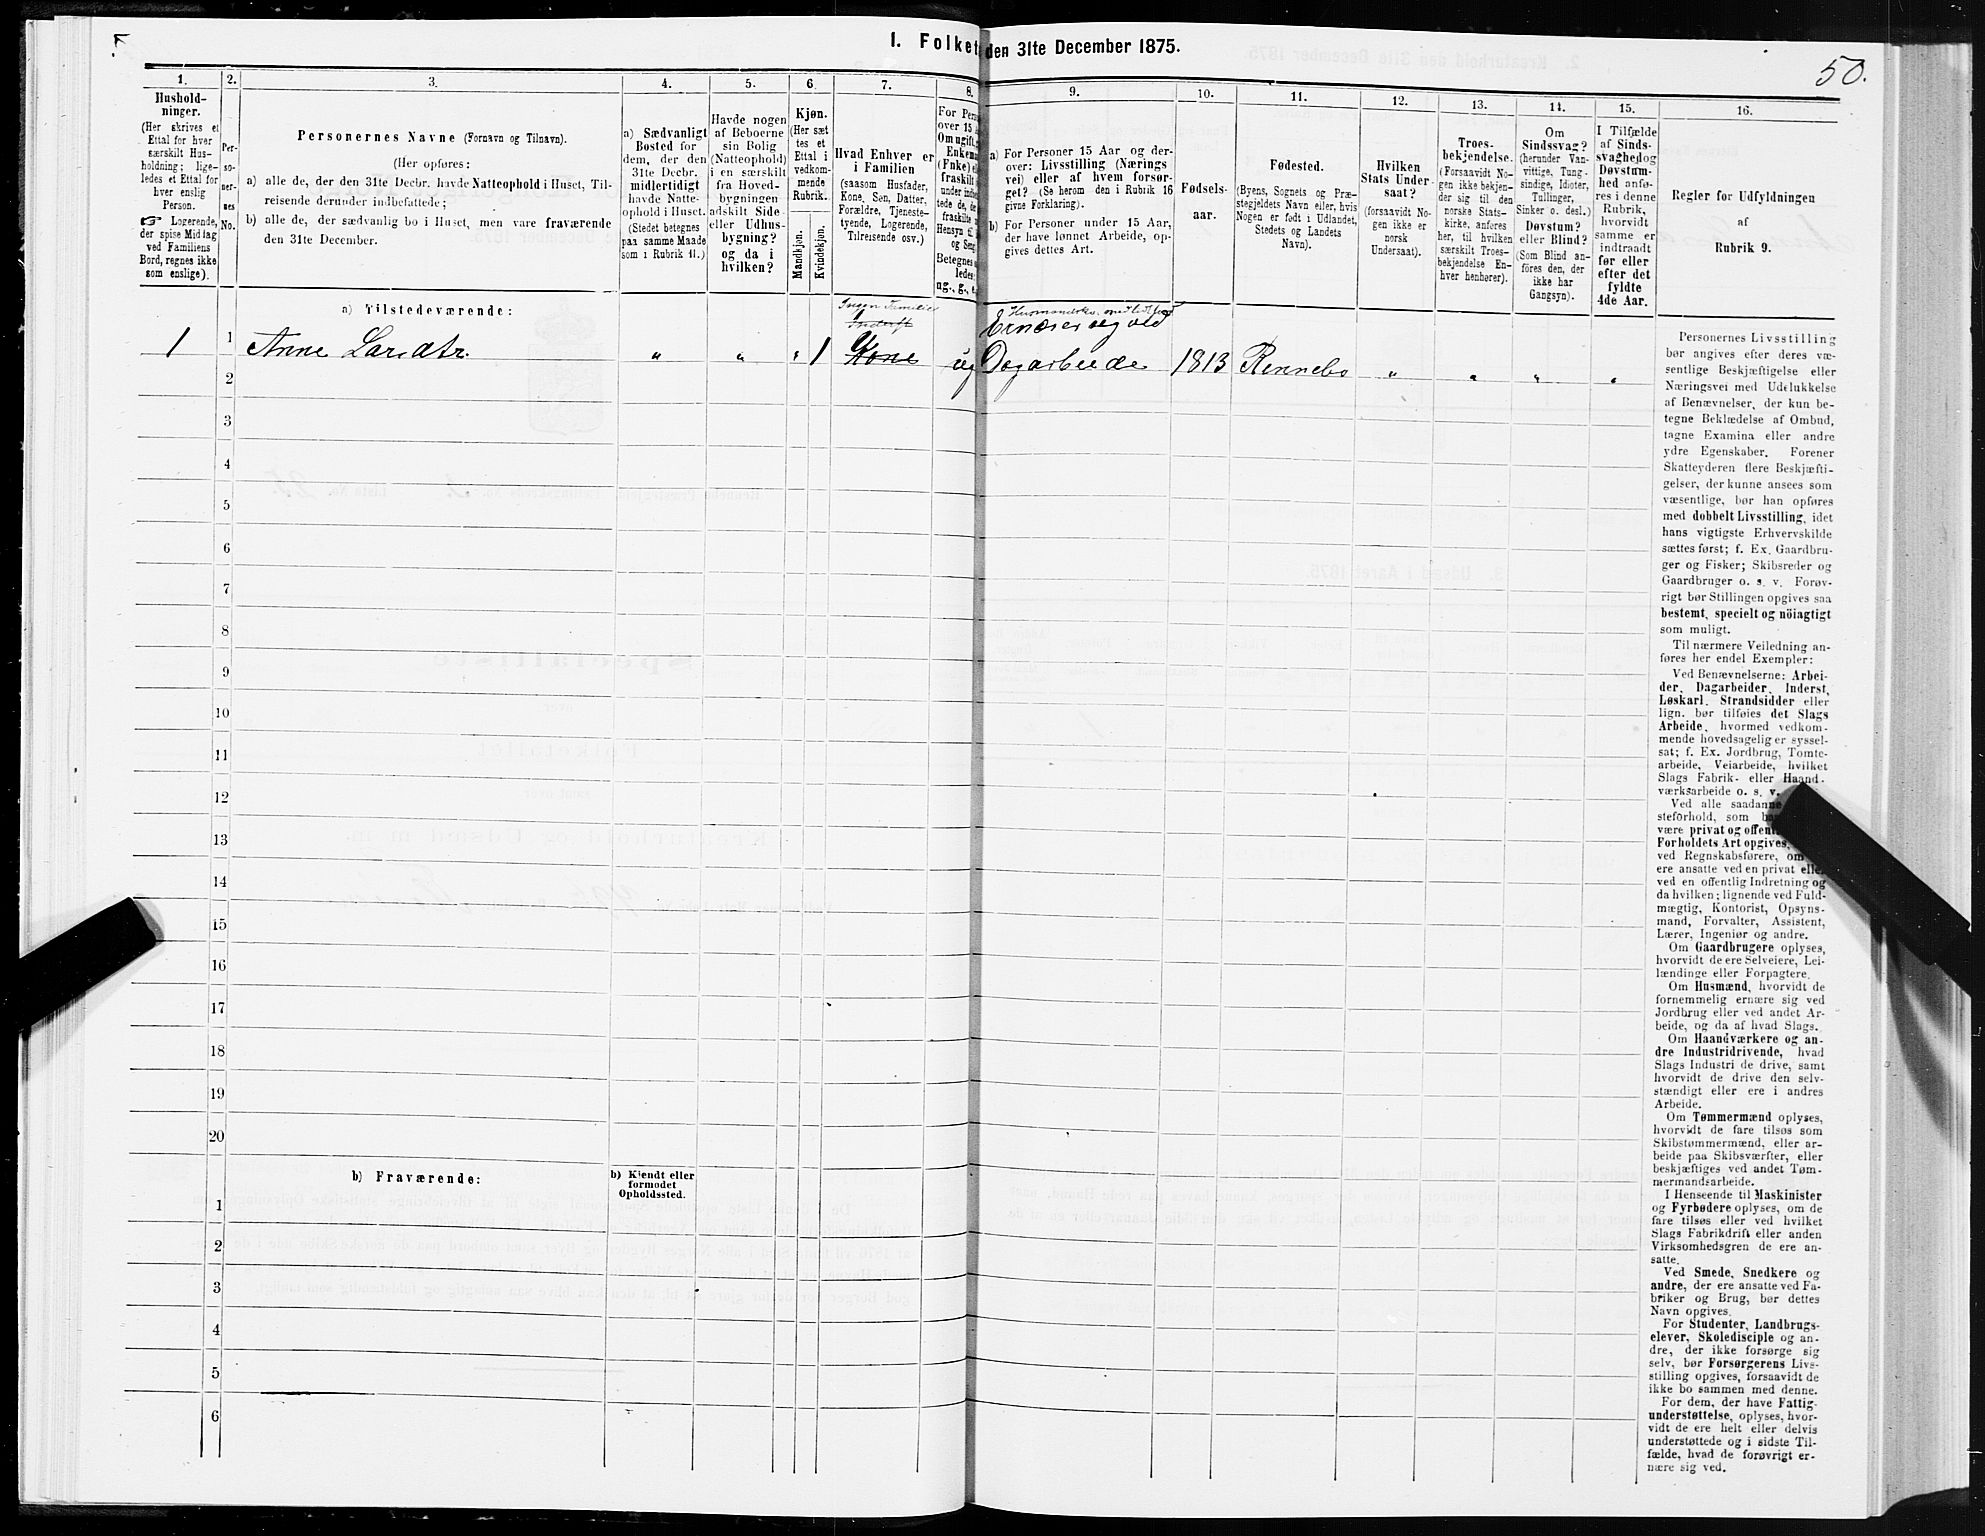 1. Folket
den 31te December 1875.
50.
1.
Hushold-
ninger.
(Her skrives et
Ettal for hver
særskilt Hus-
holdning; lige-
ledes et Ettal for
hver enslig
Person.
☞ Logerende,
der spise Middag
ved Familiens
Bord, regnes ikke
som enslige).
2.
Per-
so-
ner-
nes
No.
3.
Personernes Navne (Fornavn og Tilnavn).
(Her opføres:
a) alle de, der den 31te Decbr. havde Natteophold i Huset, Til-
reisende derunder indbefattede;
b) alle de, der sædvanlig bo i Huset, men vare fraværende
den 31te December.
4.
a) Sædvanligt
Bosted for
dem, der den
31te Decbr.
midlertidigt
havde Natte-
ophold i Huset.
(Stedet betegnes
paa samme Maade
som i Rubrik 11.)
5.
Havde nogen
af Beboerne
sin Bolig
(Natteophold)
i en særskilt
fra Hoved-
bygningen
adskilt Side-
eller Udhus-
bygning?
og da i
hvilken?
6.
Kjøn.
(Her sæt
tes et
Ettal i
vedkom-
mende
Rubrik.
Mandkjøn.
Kvindekjøn.
7.
Hvad Enhver er
i Familien
(saasom Husfader,
Kone, Søn, Datter,
Forældre, Tjeneste-
tyende, Logerende,
Tilreisende osv.)
8.
For Pers
over 15
Om ugift,
Enkema
(Fnke) el
fraskilt
under indbe
tede de, de
fraskilte
Hensyn til
og Seng
Betegnes
ledes:
ug., g., e.,
9.
a) For Personer 15 Aar og der-
over: Livsstilling (Nærings
vei) eller af hvem forsør-
get? (Se herom den i Rubrik 16
givne Forklaring).
b) For Personer under 15 Aar,
der have lønnet Arbeide, op-
gives dettes Art.
10.
Fødsels-
aar.
11.
Fødested.
(Byens, Sognets og Præ-
stegjeldets Navn eller, hvis
Nogen er født i Udlandet,
Stedets og Landets
Navn).
12.
Hvilken
Stats Under-
saat?
(forsaavidt No-
gen ikke er
norsk
Undersaat).
13.
Troes-
bekjendelse.
(Forsaavidt No-
gen ikke bekjen-
der sig til den
norske Stats-
kirke, anføres
her, til hvilken
særskilt Troes-
bekjendelse En-
hver henhører).
14.
Om
Sindssvag?
(herunder Van-
vittige, Tung-
sindige, Idioter,
Tullinger,
Sinker o. desl.)
Døvstum?
eller Blind?
(Som Blind an-
føres den, der
ikke har
Gangsyn).
15.
I Tilfælde
af Sinds-
svaghed og
Døvstum-
hed anfø-
res i denne
Rubrik,
hvorvidt
samme er
indtraadt
før eller
efter det
fyldte
4de Aar.
16.
Regler for Udfyldningen
af
Rubrik 9.
a) Tilstedeværende:
1
1
Anne Larsdtr.
"
"
"
1
Ingen Familie
Inderst
Kone
ug
Ernærer sig ved
Dagarbeide
1813
Rennebo
"
"
"
"
2
3
4
5
6
7
8
9
10
11
12
13
14
15
16
17
18
19
20
b) Fraværende:
b) Kjendt eller
formodet
Opholdssted.
1
2
3
4
5
6
Personernes Livsstilling
bør angives efter deres væ-
sentlige Beskjæftigelse eller
Næringsvei med Udelukkelse
af Benævnelser, der kun be-
tegne Beklædelse af Ombud,
tagne Examina eller andre
ydre Egenskaber. Forener
Skatteyderen flere Beskjæfti-
gelser, der kunne ansees som
væsentlige, bør han opføres
med dobbelt Livsstilling, idet
hans vigtigste Erhvervskilde
sættes først; f. Ex. Gaardbru-
ger og Fisker; Skibsreder og
Gaardbruger o. s. v. Forøv-
rigt bør Stillingen opgives saa
bestemt, specielt og nöiagtigt
som muligt.
Til nærmere Veiledning an-
føres her endel Exempler:
Ved Benævnelserne: Arbei-
der, Dagarbeider, Inderst,
Løskarl, Strandsidder eller
lign. bør tilføies det Slags
Arbeide, hvormed vedkom-
mende hovedsagelig er syssel-
sat; f. Ex. Jordbrug, Tomte-
arbeide, Veiarbeide, hvilket
Slags Fabrik- eller Haand-
værksarbeide o. s. v.
Ved alle saadanne
steforhold, som
være privat og offent
Forholdets Art opgives,
ved Regnskabsførere, om
ere ansatte ved en privat eller
ved en offentlig Indretning og
da hvilken; lignende ved Fuld-
mægtig, Kontorist, Opsyns-
mand, Forvalter, Assistent,
Lærer, Ingeniør og andre.
Om Gaardbrugere oplyses,
hvorvidt de ere Selveiere, Lei-
lændinge eller Forpagtere.
Om Husmænd, hvorvidt de
fornemmelig ernære sig ved
Jordbrug eller ved andet Ar-
beide, og da af hvad Slags.
Om Haandværkere og an-
dre Industridrivende, hvad
Slags Industri de drive, samt
hvorvidt de drive den selv-
stændigt eller ere i andres
Arbeide.
Om Tømmermænd oplyses,
hvorvidt de fare tilsøs som
Skibstømmermænd, eller ar-
beide paa Skibsværfter, eller
beskjæftiges ved andet Tøm-
mermandsarbeide.
I Henseende til Maskinister
og Fyrbødere oplyses, om de
fare tilsøs eller ved hvilket
Slags Fabrikdrift eller anden
Virksomhedsgren de ere an-
satte.
Ved Smede, Snedkere og
andre, der ere ansatte ved Fa-
briker og Brug, bør dettes
Navn opgives.
For Studenter, Landbrugs-
elever, Skoledisciple og an-
dre, der ikke forsørge sig
selv, bør Forsørgerens Livs-
stilling opgives, forsaavidt de
ikke bo sammen med denne.
For dem, der have Fattig-
understøttelse, oplyses, hvor-
vidt de ere helt eller delvis
understøttede og i sidste Til-
fælde, hvad de forøvrigt er-
nære sig ved.